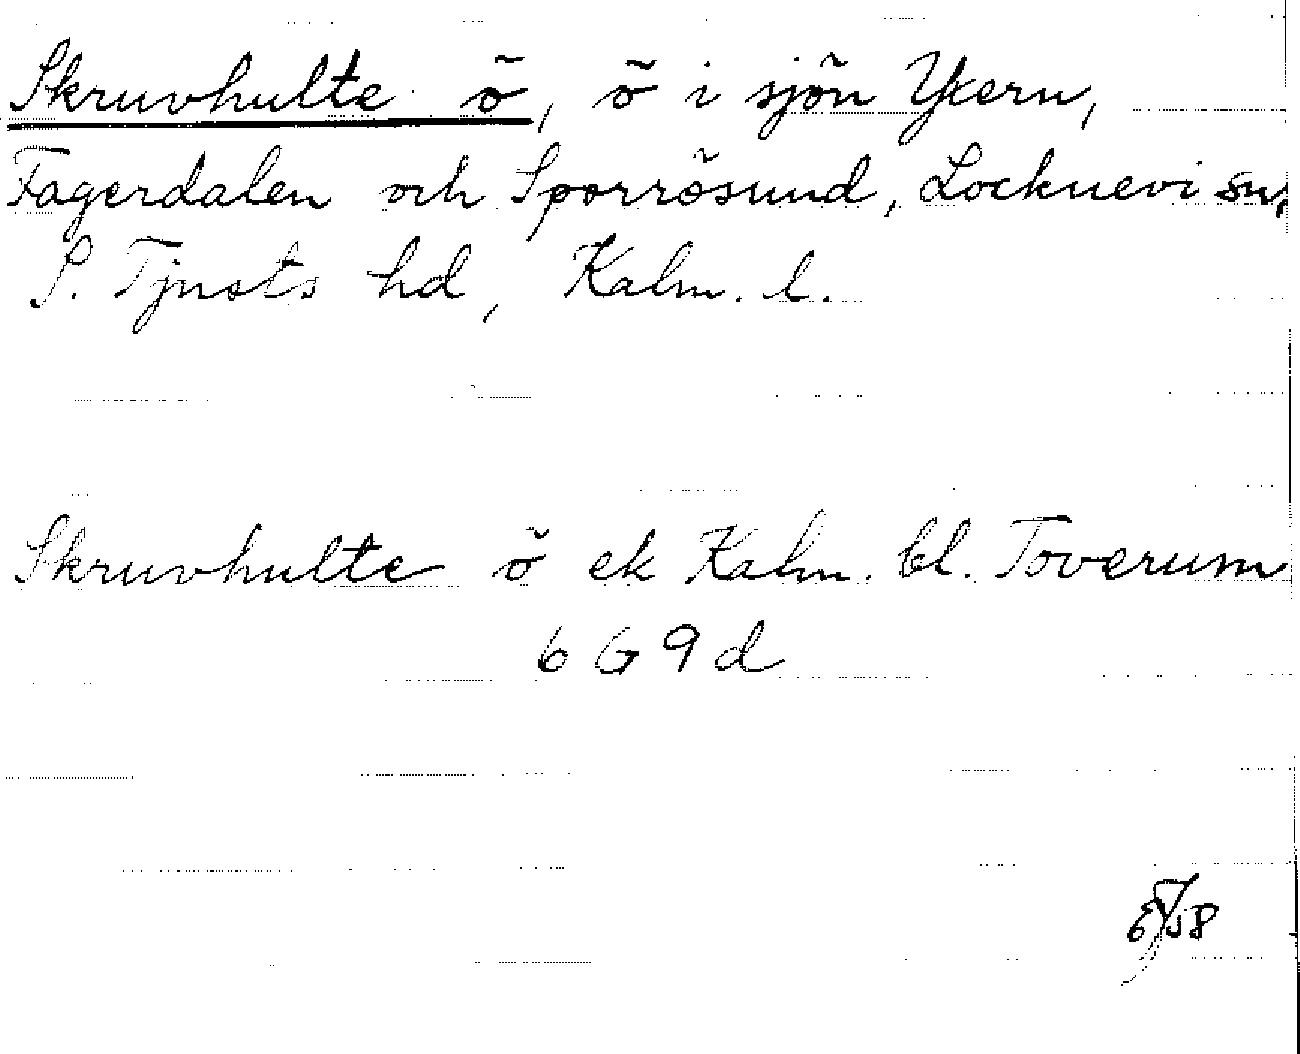 Skruvhulte ö, ö i sjön Yxern,
Fagerdalen och Sporrösund, Locknevi sn,
S. Tjusts hd, Kalm. l.
Skruvhulte ö ek Kalm. bl. Toverum
6 G 9 d